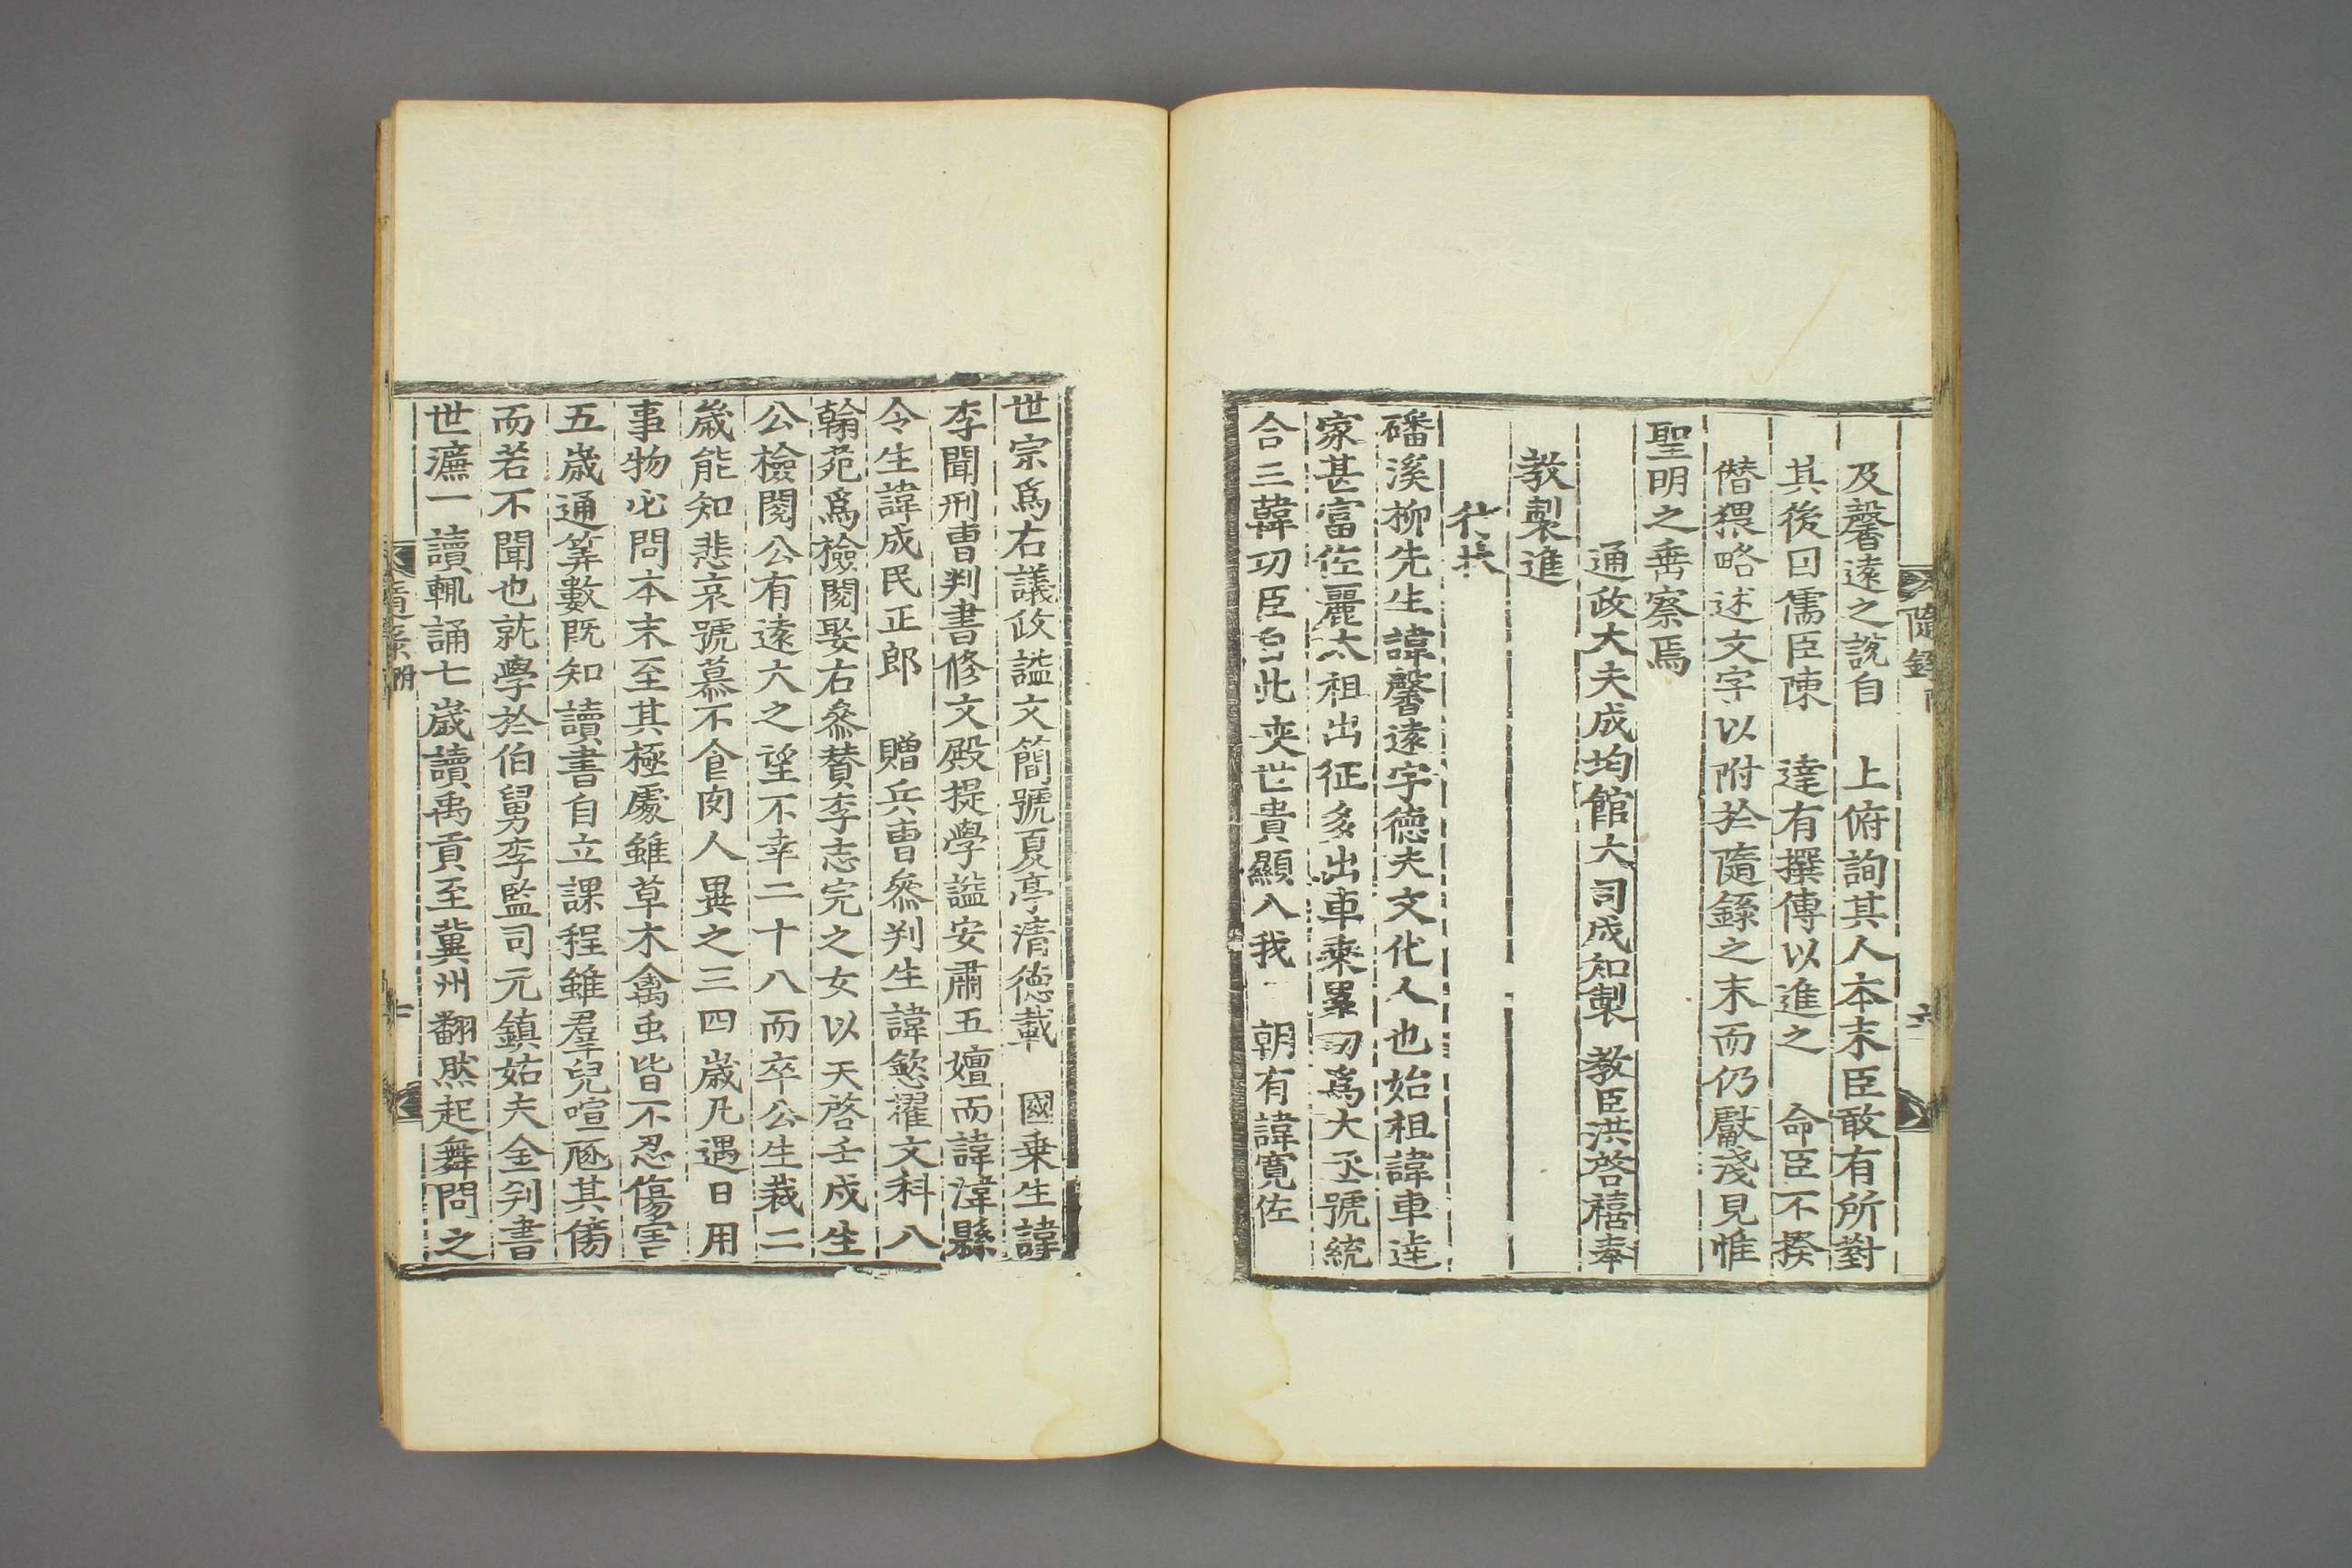 隨錄
六
及馨遠之說自　上俯詢其人本末臣敢有所對
其後因儒臣陳　達有撰傳以進之　命臣不揆
僭猥略述文字以附於隨錄之末而仍獻淺見惟
聖明之垂察焉
通政大夫成均館大司成知製　教臣洪啓禧奉
教製進
行狀
磻溪柳先生諱馨遠字德夫文化人也始祖諱車達
家甚富佐麗太祖出征多出車乘累功爲大丞號統
合三韓功臣自此奕世貴顯入我　朝有諱寬佐
世宗爲右議政謚文簡號夏亭淸德載　國乘生諱
李聞刑曹判書修文殿提學謚安肅五嬗而諱湋縣
令生諱成民正郎　贈兵曹叅判生諱𢡱擢文科入
翰苑爲檢閱娶右叅贊李志完之女以天啓壬戌生
公檢閱公有遠大之望不幸二十八而卒公生裁二
歲能知悲哀號慕不食肉人異之三四歲凡遇日用
事物必問本末至其極處雖草木禽虫皆不忍傷害
五歲通筭數旣知讀書自立課程雖羣兒喧豗其傍
而若不聞也就學於伯舅李監司元鎭姑夫金判書
世濂一讀輒誦七歲讀禹貢至冀州翻然起舞問之
隨錄附
七